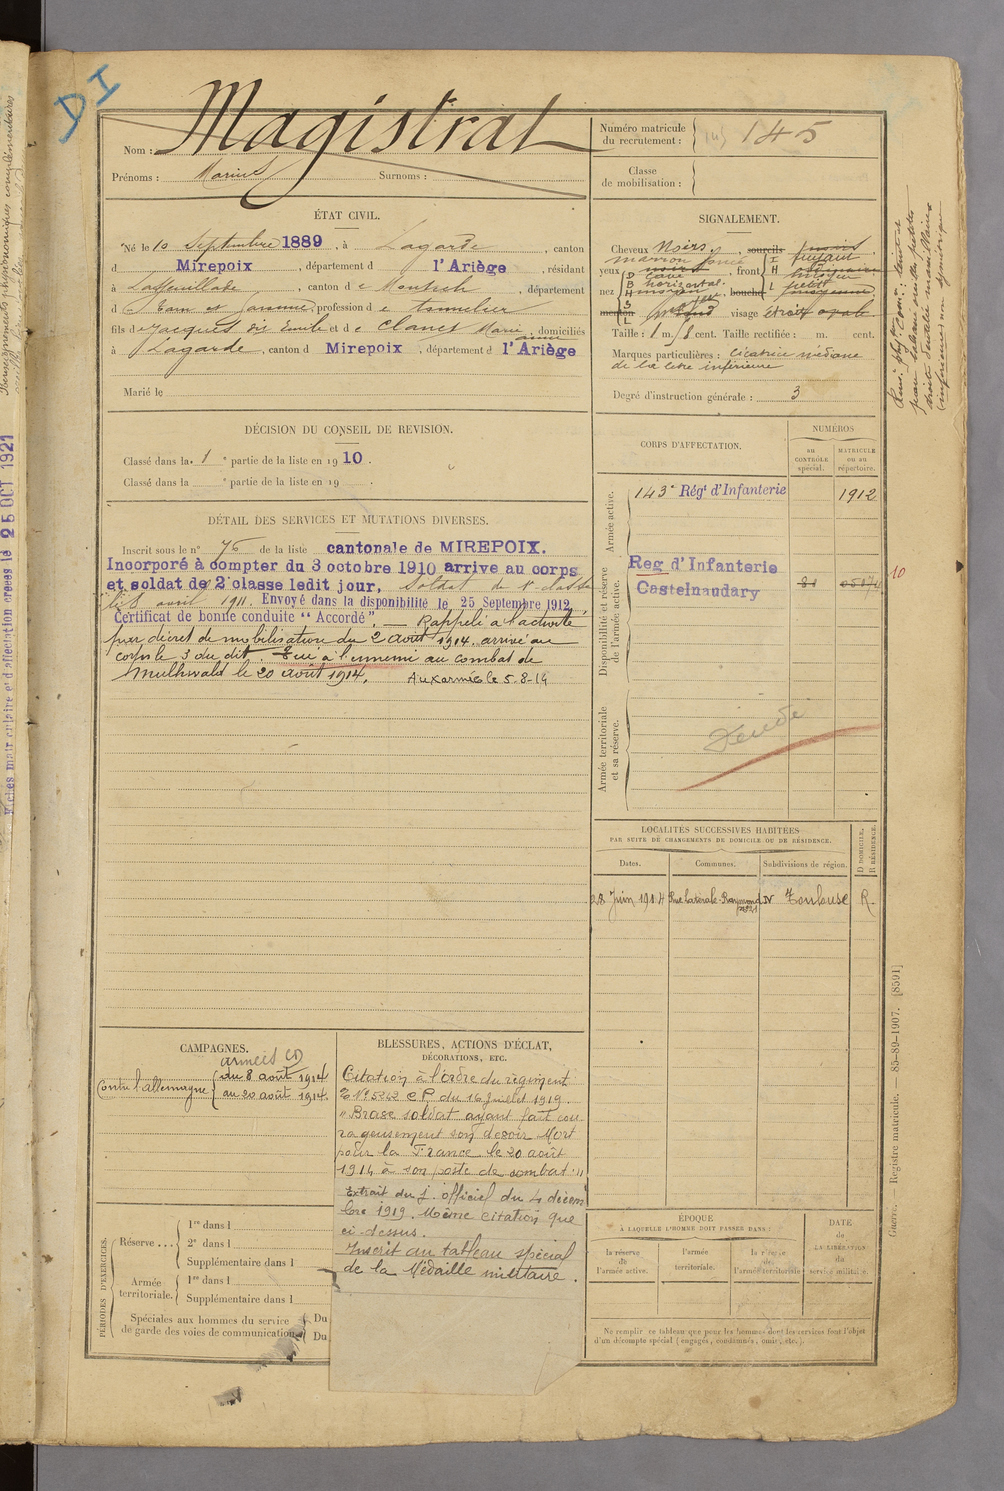 DI
Nom : Magistrat
Prénoms : Marius Surnoms :
ÉTAT CIVIL.
Né le 10 Septembre 1889, à Lagarde, canton
d Mirepoix, département d l'Ariège, résidant
à Laffeuillade, canton d e Montech, département
d e Tarn et Garonne, profession d e tonnelier
fils d e Jacques dit Emile et d e Clanet Marie, domiciliés
à Lagarde, canton d Mirepoix, département d l'Ariège
Marié le
DÉCISION DU CONSEIL DE REVISION.
Classé dans la 1e partie de la liste en 1910.
Classé dans la e partie de la liste en 19 .
DÉTAIL DES SERVICES ET MUTATIONS DIVERSES.
Inscrit sous le n° 76 de la liste cantonale de MIREPOIX.
Incorporé à compter du 3 octobre 1910 arrive au corps
et soldat de 2e classe ledit jour, Soldat de 1e classe
le 8 avril 1911. Envoyé dans la disponibilité le 25 Septembre 1912.
Certificat de bonne conduite "Accordé". — Rappelé à l'activité
par décret de mobilisation du 2 août 1914. arrivé au
corps le 3 du dit. Tué à l'ennemi au combat de
Mulhwald le 20 août 1914. Aux armées le 5-8-14
CAMPAGNES.
armées
Contre l'allemagne { du 8 août 1914
au 20 août 1914.
BLESSURES, ACTIONS D'ÉCLAT,
DÉCORATIONS, ETC.
Citation à l'ordre du régiment
N° 5242 du 16 Juillet 1919.
"Brave soldat ayant fait cou
rageusement son devoir Mort
pour la France le 20 août
1914 à son poste de combat"
Extrait du j. officiel du 4 décem
bre 1919. Même citation que
ci-dessus.
Inscrit au tableau spécial
de la Médaille militaire.
PÉRIODES D'EXERCICES.
Réserve ... { 1re dans l
2e dans l
Supplémentaire dans l
Armée territoriale. { 1re dans l
Supplémentaire dans l
Spéciales aux hommes du service
de garde des voies de communication { Du
Du
Numéro matricule
du recrutement : 145
Classe
de mobilisation :
SIGNALEMENT.
Cheveux Noirs, sourcils noirs
marron foncé
yeux noirs, front { I fuyant
H
L petit
nez { D cave
B horizontal
H moyen, bouche moyenne
menton visage étroit ovale
Taille : 1 m. cent. Taille rectifiée : m. cent.
Marques particulières : cicatrice médiane
de la lèvre inférieure
Degré d'instruction générale : 3
CORPS D'AFFECTATION.
NUMÉROS
au CONTRÔLE spécial.
MATRICULE ou au répertoire.
Armée active.
143e Régt d'Infanterie 1912
Disponibilité et réserve
de l'armée active.
Reg d'Infanterie
Castelnaudary
10
Armée territoriale
et sa réserve.
LOCALITÉS SUCCESSIVES HABITÉES
PAR SUITE DE CHANGEMENTS DE DOMICILE OU DE RÉSIDENCE.
Dates. Communes. Subdivisions de région. D DOMICILE. R RÉSIDENCE.
28 Juin 1914 Rue latérale Raymond IV Toulouse R.
ÉPOQUE
À LAQUELLE L'HOMME DOIT PASSER DANS :
la réserve de l'armée active.
l'armée territoriale.
la réserve de l'armée territoriale
DATE
de
LA LIBÉRATION
du
service militaire.
Ne remplir ce tableau que pour les hommes dont les services font l'objet
d'un décompte spécial (engagés, condamnés, omis, etc.).
Guerre. Registre matricule. 85-89-1907. [8591]
Renseignements physionomiques complémentaires
25 OCT 1921